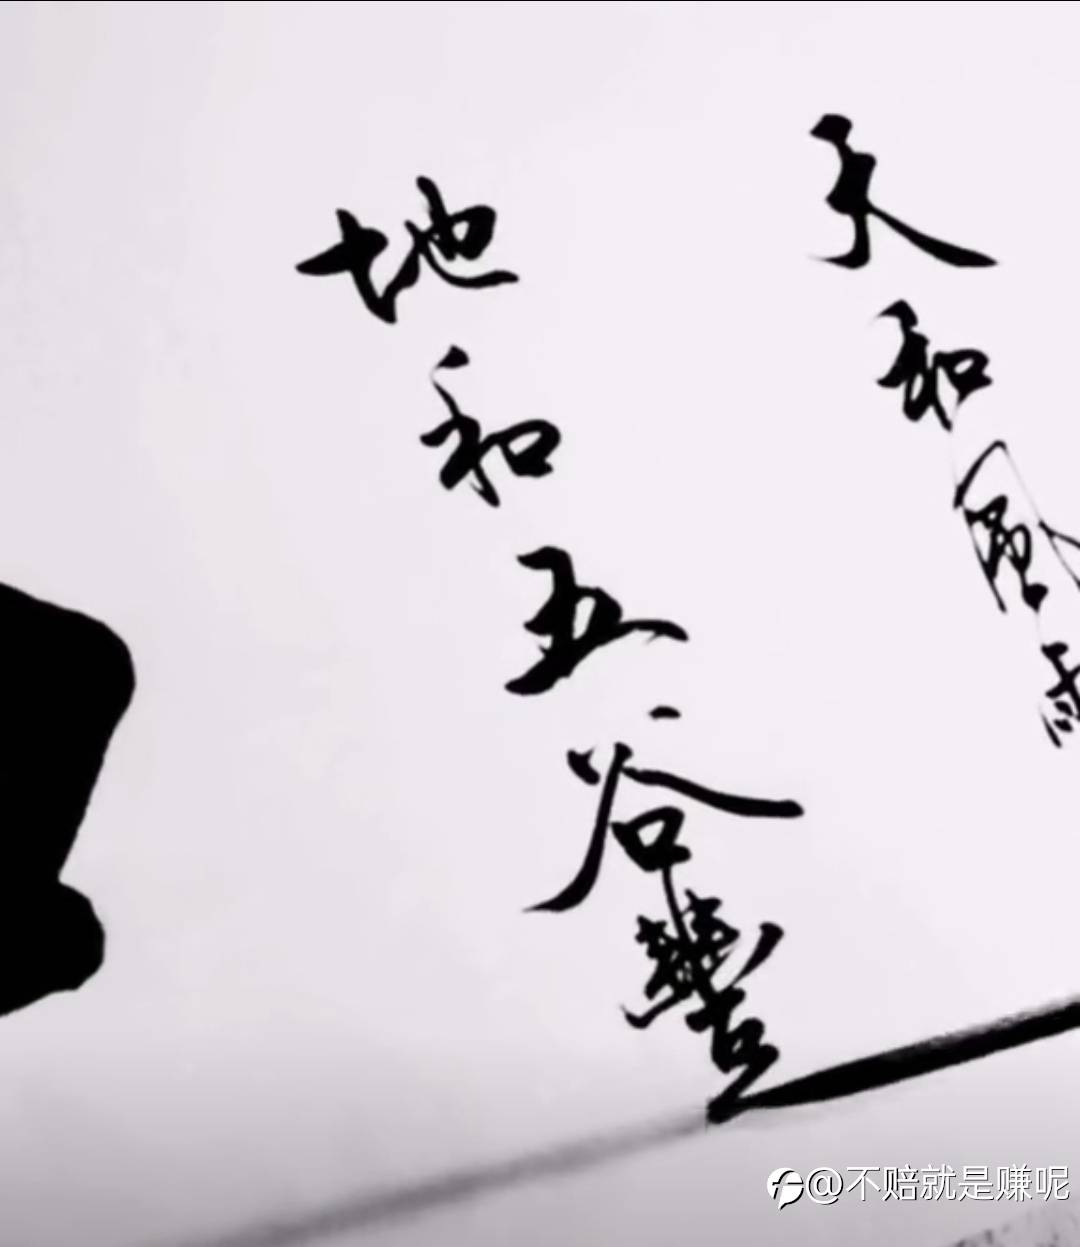 天和風雨
地和五谷豐
@不赔就是赚呢